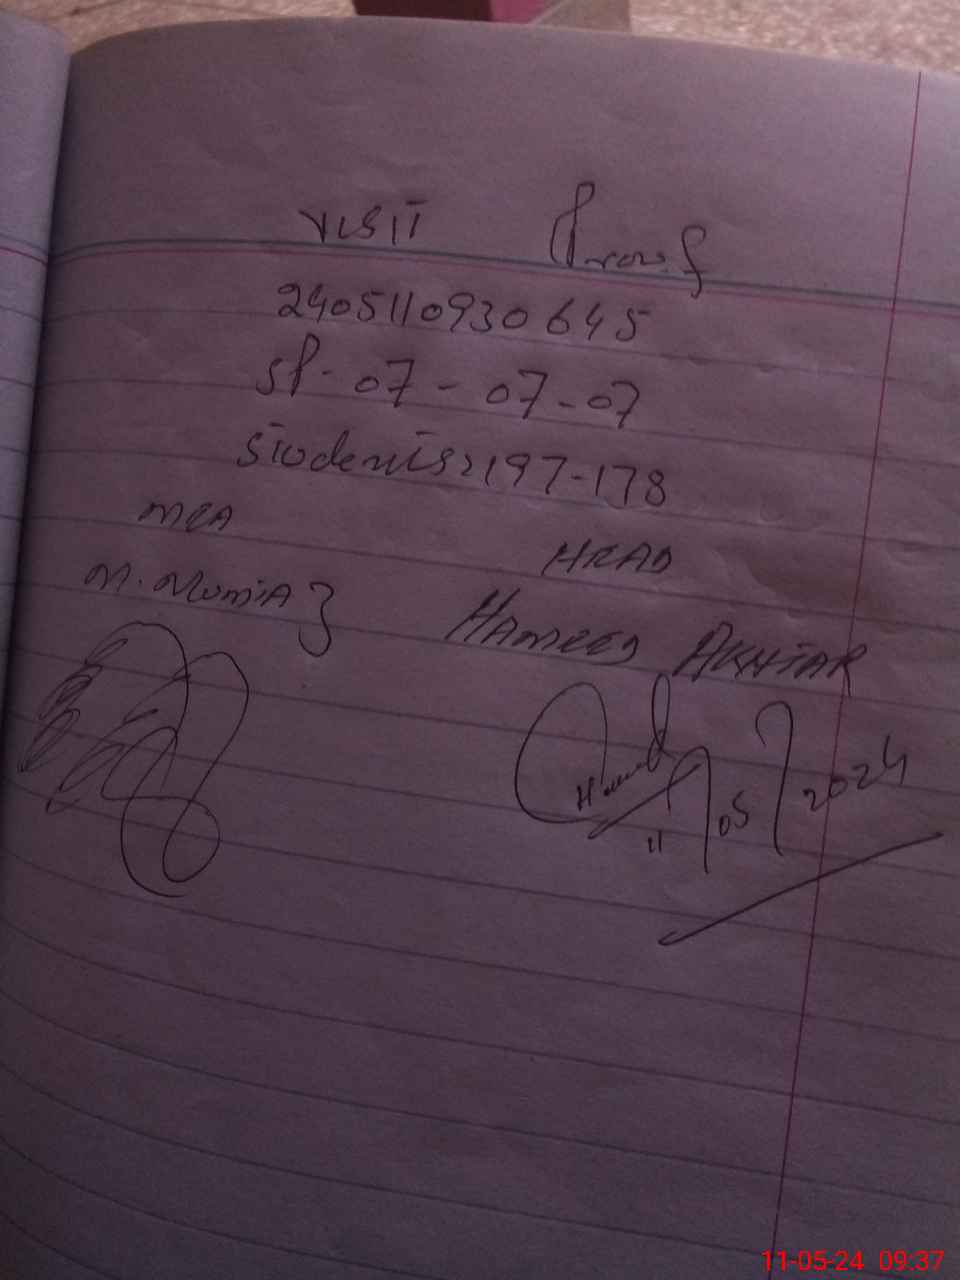 VISIT Proof
2405110930645
SP-07-07-07
Students: 197-178
MEA HEAD
M. Mumtaz HAMEED AKHTAR
11/05/2024
11-05-24 09:37